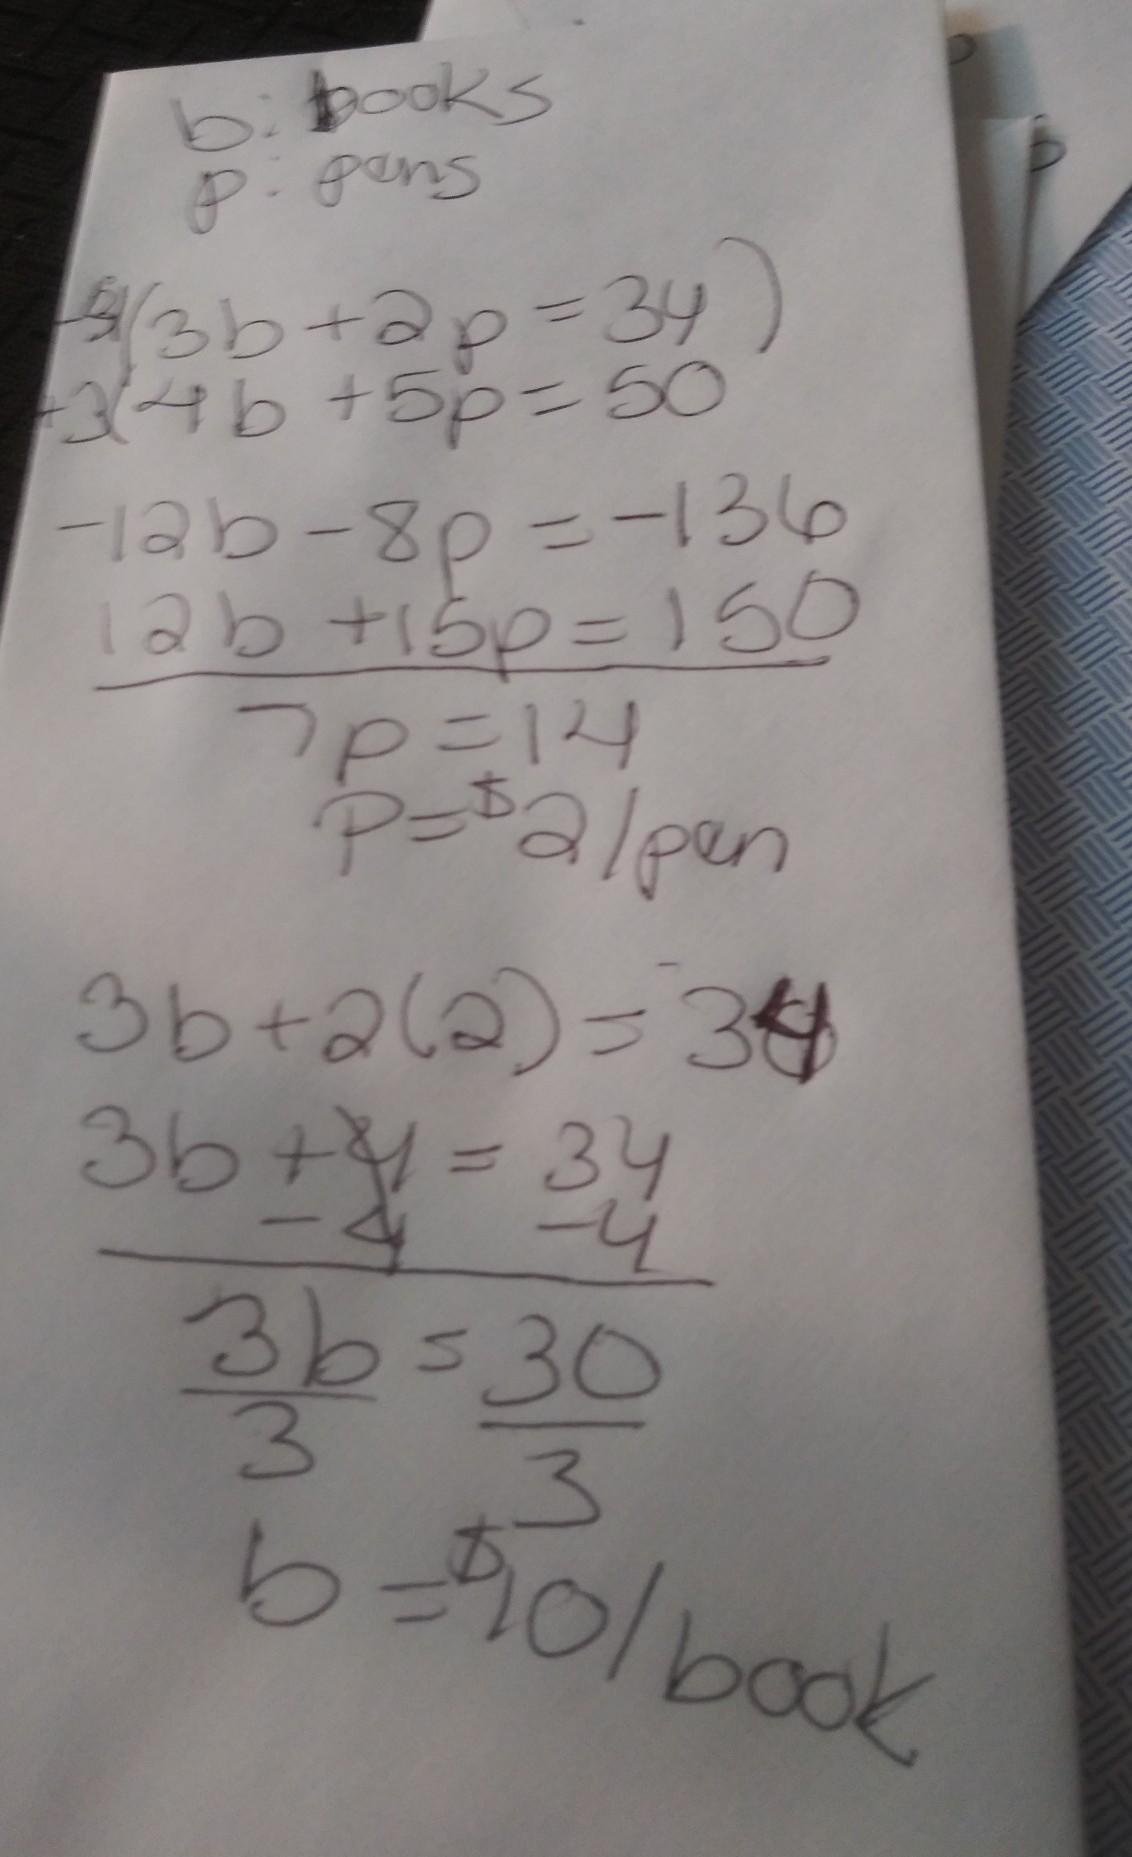 b: books
p: pens
(3b + 2p = 34)
+3(4b + 5p = 50
-12b - 8p = -136
12b + 15p = 150
7p = 14
p = $2/pen
3b + 2(2) = 34
3b + 4 = 34
- 4 -4
3b = 30
3 3
b = $10/book